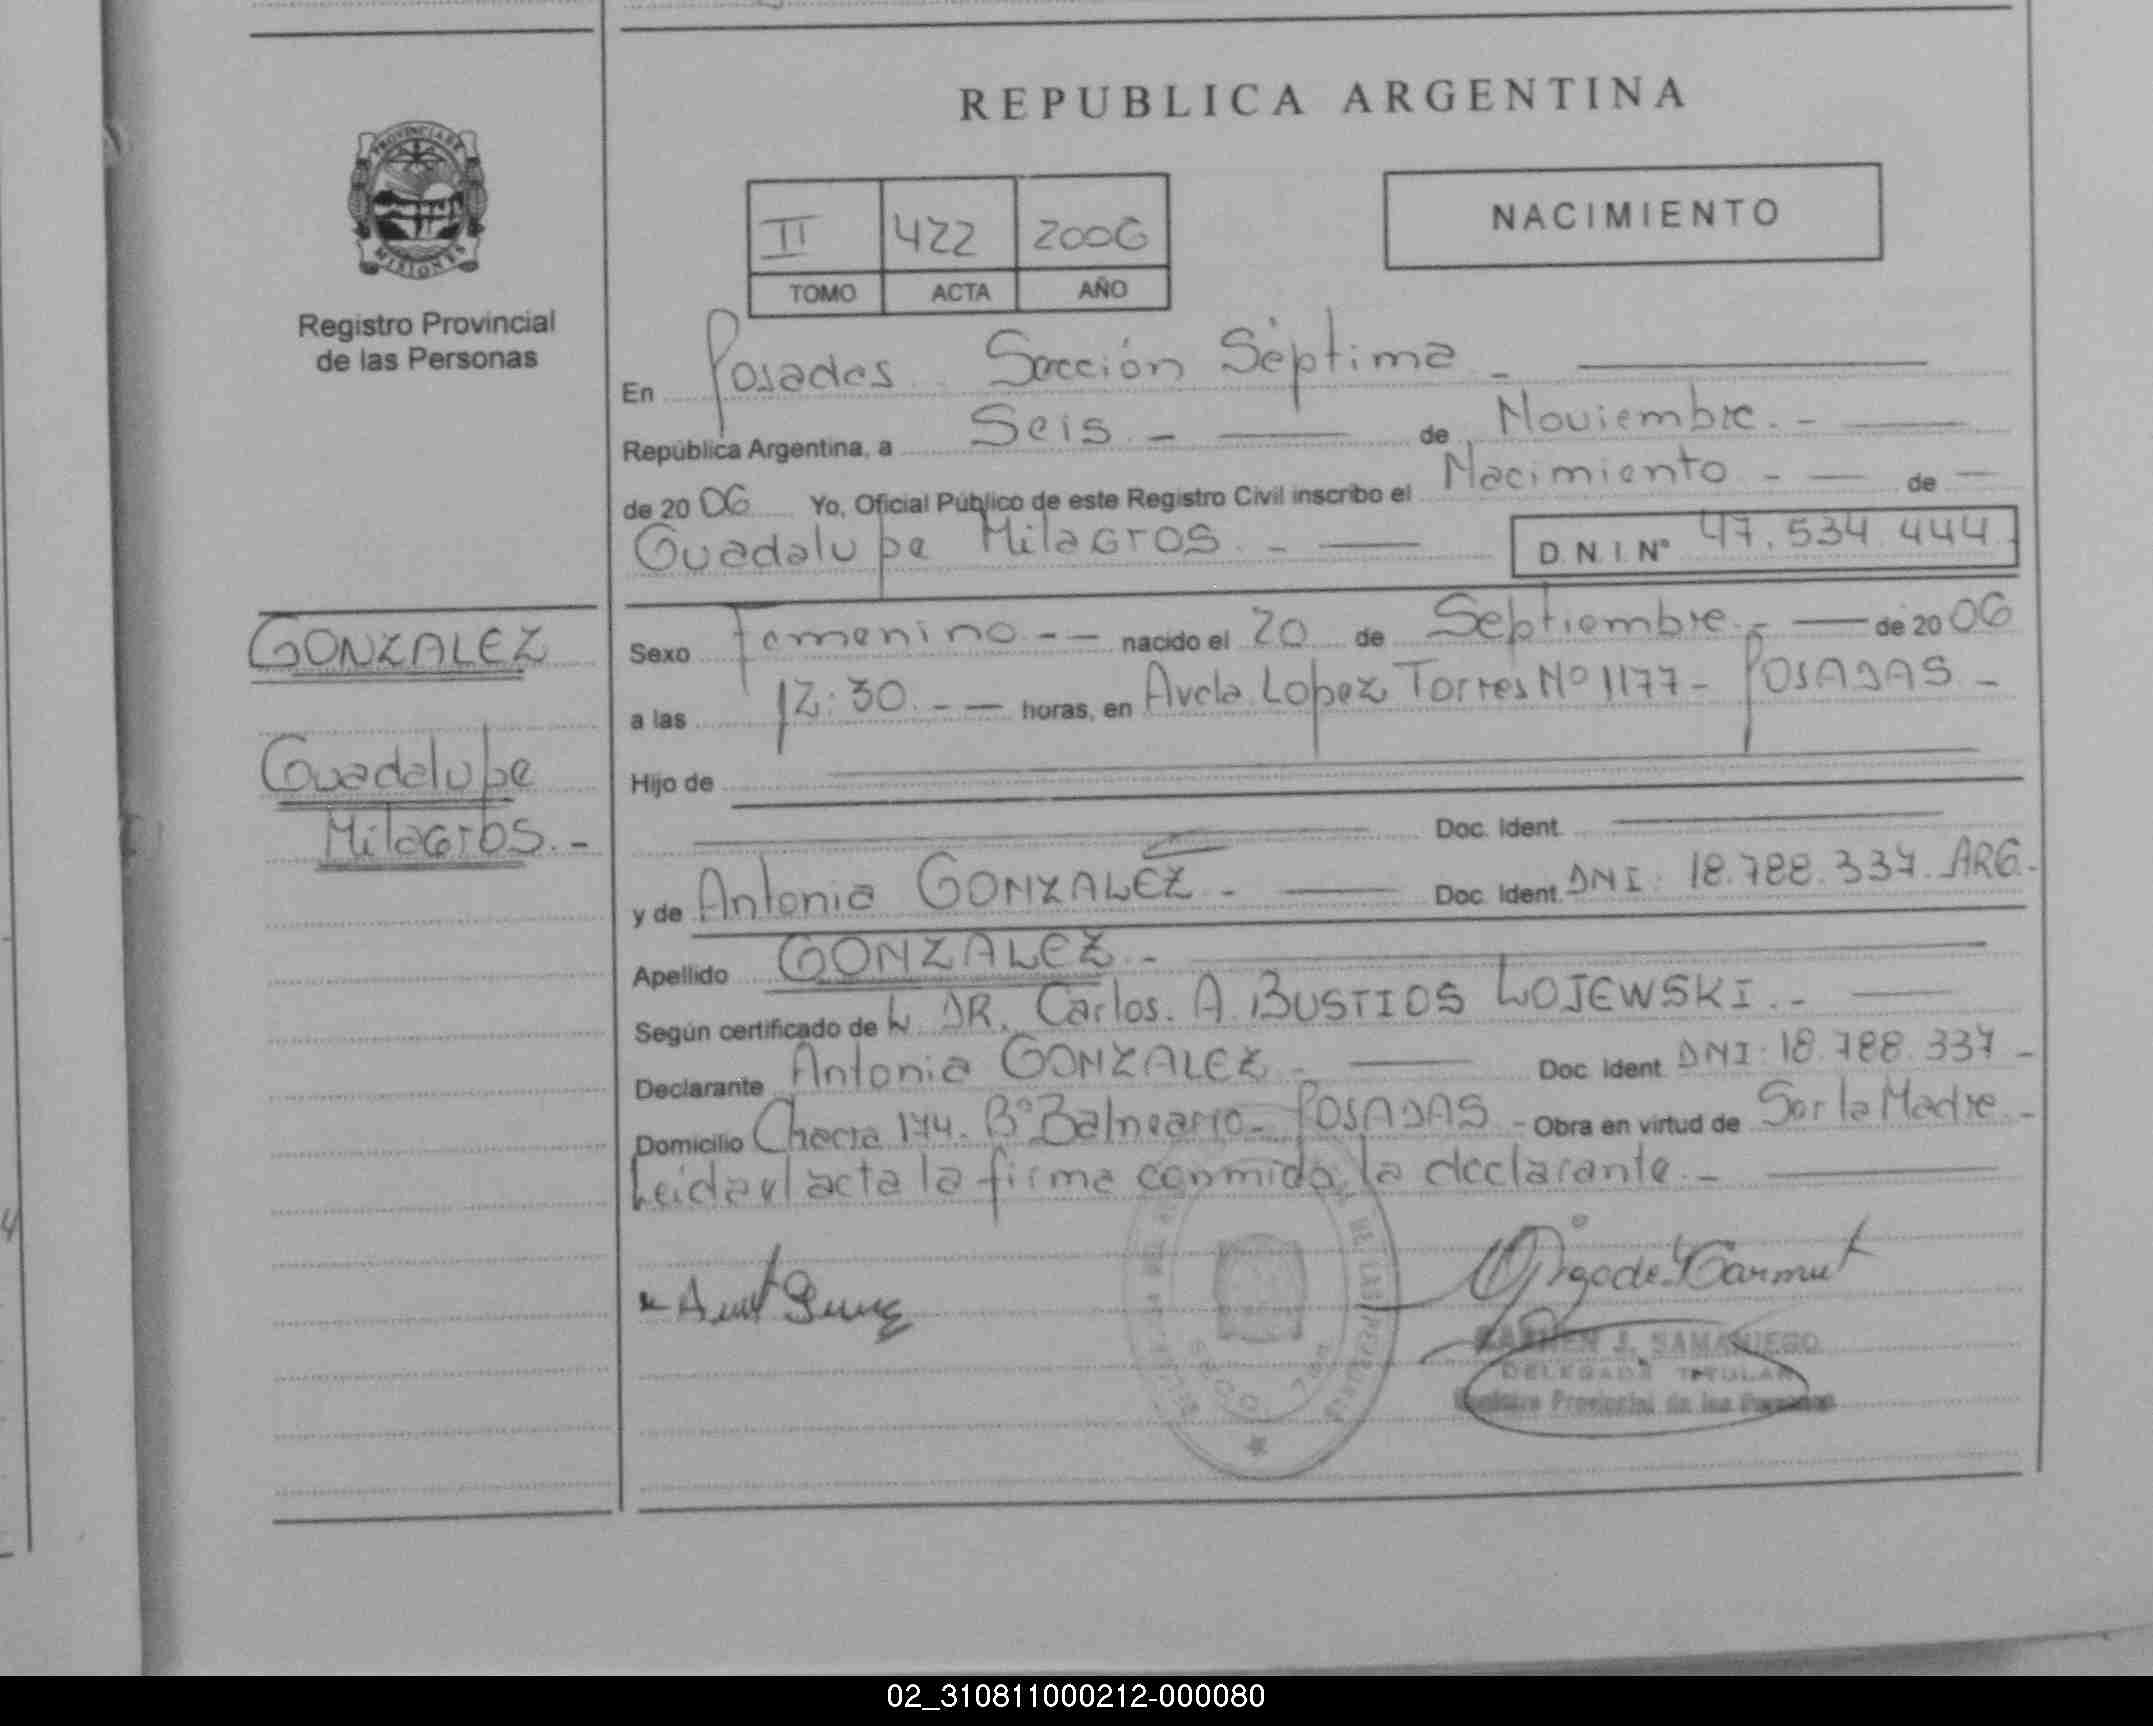 REPUBLICA ARGENTINA
PROVINCIA DE
MISIONES
Registro Provincial
de las Personas
II 422 2006
TOMO ACTA AÑO
NACIMIENTO
En Posadas Sección Séptima -
República Argentina, a Seis - de Noviembre. -
de 2006 Yo, Oficial Público de este Registro Civil inscribo el Nacimiento - de
Guadalupe Milagros. - D.N.I. Nº 47.534.444.
GONZALEZ
Guadalupe
Milagros. -
Sexo Femenino - - nacido el 20 de Septiembre. - de 2006
a las 12:30. - - horas, en Avda. Lopez Torres Nº 1177 - POSADAS -
Hijo de
Doc. Ident.
y de Antonia GONZALEZ - Doc. Ident. DNI: 18.788.337. ARG. -
Apellido GONZALEZ. -
Según certificado de DR. Carlos. A. BUSTIOS LOJEWSKI. -
Declarante Antonia GONZALEZ - Doc. Ident. DNI: 18.788.337 -
Domicilio Chacra 174. Bº Balneario - POSADAS - Obra en virtud de Ser la Madre. -
Leida el acta la firma conmigo la declarante. -
CARMEN J. SAMANIEGO
DELEGADA TITULAR
Registro Provincial de las Personas
02_310811000212-000080